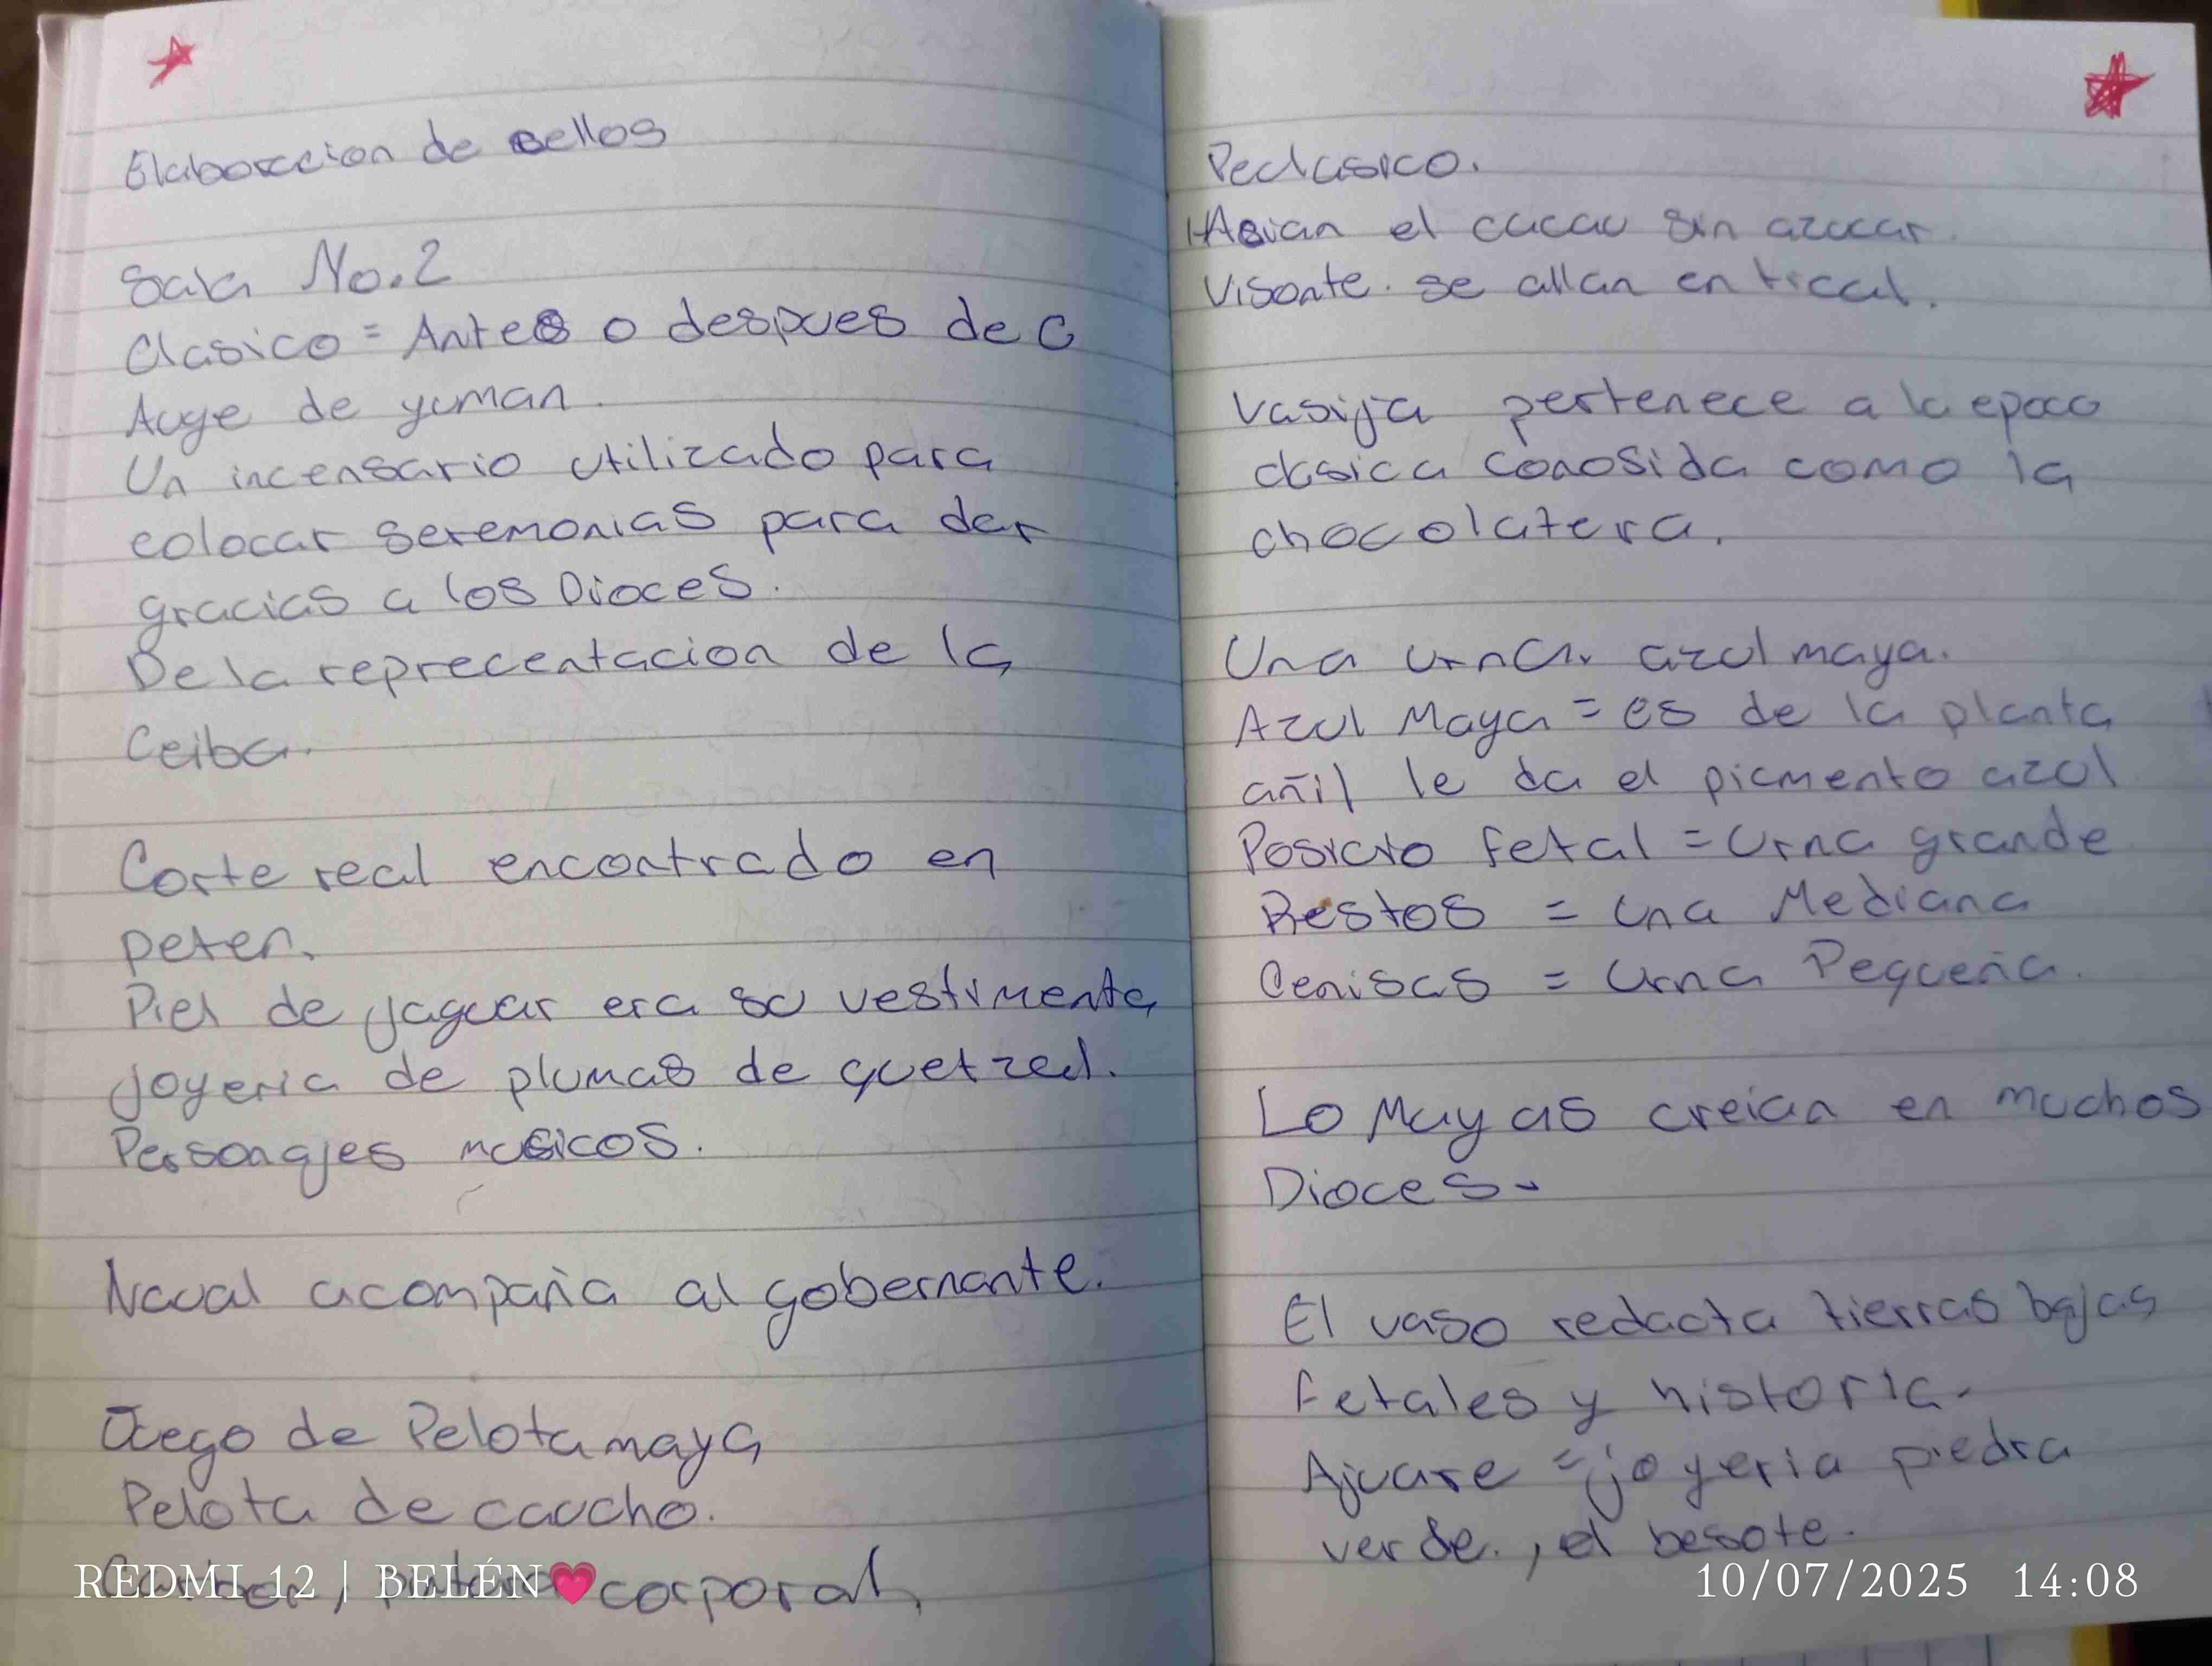 Elaboraccion de sellos
Sala No.2
Clasico = Antes o despues de C
Auge de yuman.
Un incensario utilizado para
colocar seremonias para dar
gracias a los Dioces.
De la reprecentacion de la
Ceiba.
Corte real encontrado en
peten.
Piel de jaguar era su vestimenta
joyeria de plumas de quetzal.
Personajes musicos.
Naual acompaña al gobernante.
Juego de Pelota maya
Pelota de caucho.
corporal,
Peclasico.
HAsian el cacao sin azucar.
Visonte. se allan en tical.
Vasija pertenece a la epoca
clasica conosida como la
chocolatera.
Una urna. azul maya.
Azul Maya = es de la planta
añil le da el picmento azul
Posicio fetal = Urna grande
Restos = una Mediana
Cenisas = Urna Pequeña.
Lo Mayas creian en muchos
Dioces.
El vaso redacta tierras bajas
fetales y historia.
Ajuare = joyeria piedra
verde., el besote.
REDMI 12 | BELÉN💗
10/07/2025 14:08